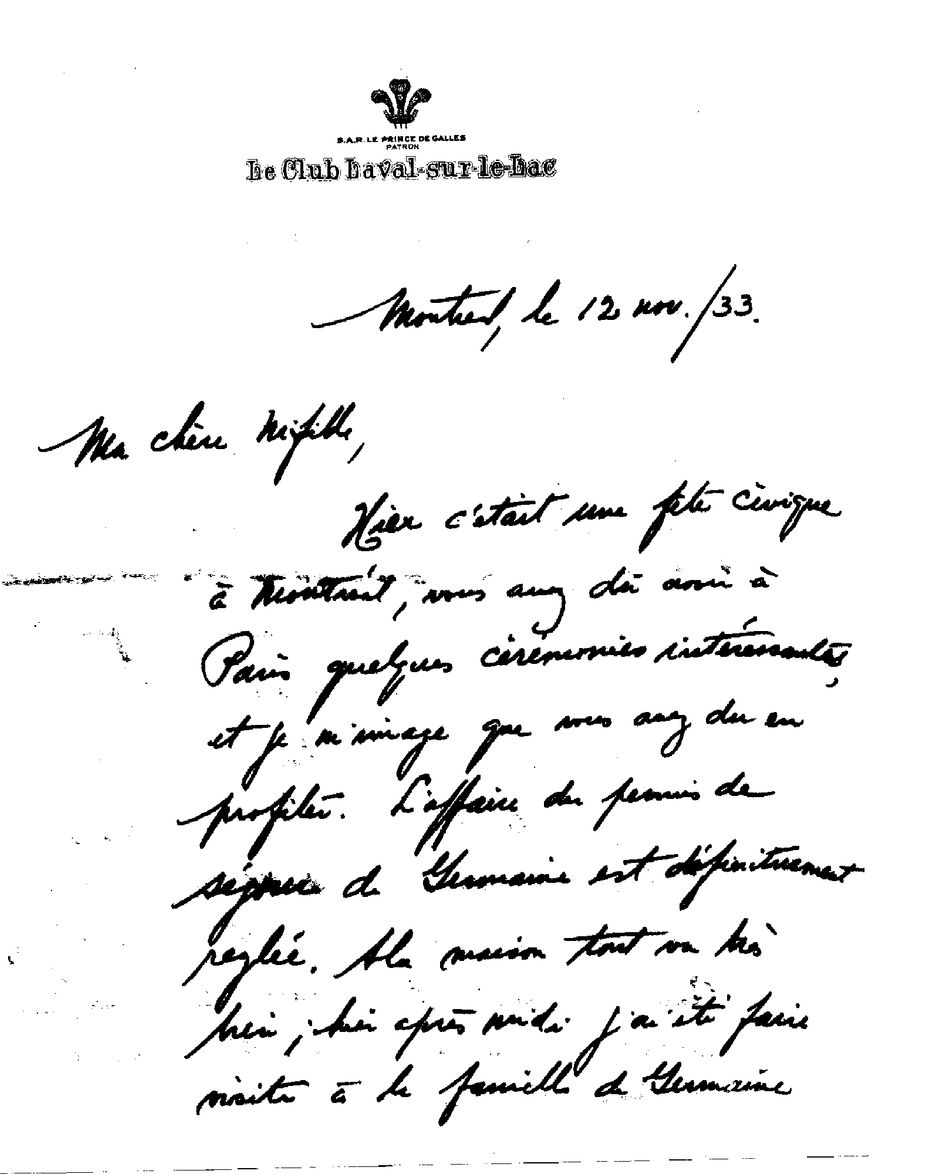 S.A.R. LE PRINCE DE GALLES
PATRON
Le Club Laval-sur-le-Lac
Montreal, le 12 nov./33.
Ma chère
Hier c'était une fête civique
à Montréal, vous avez dû avoir à
Paris quelques cérémonies intéressantes,
et je m'image que vous avez du en
profiter. L'affaire du permis de
séjour de Germaine est définitivement
reglée. A la maison tout va très
bien ; hier après midi j'ai été faire
visite à la famille de Germaine